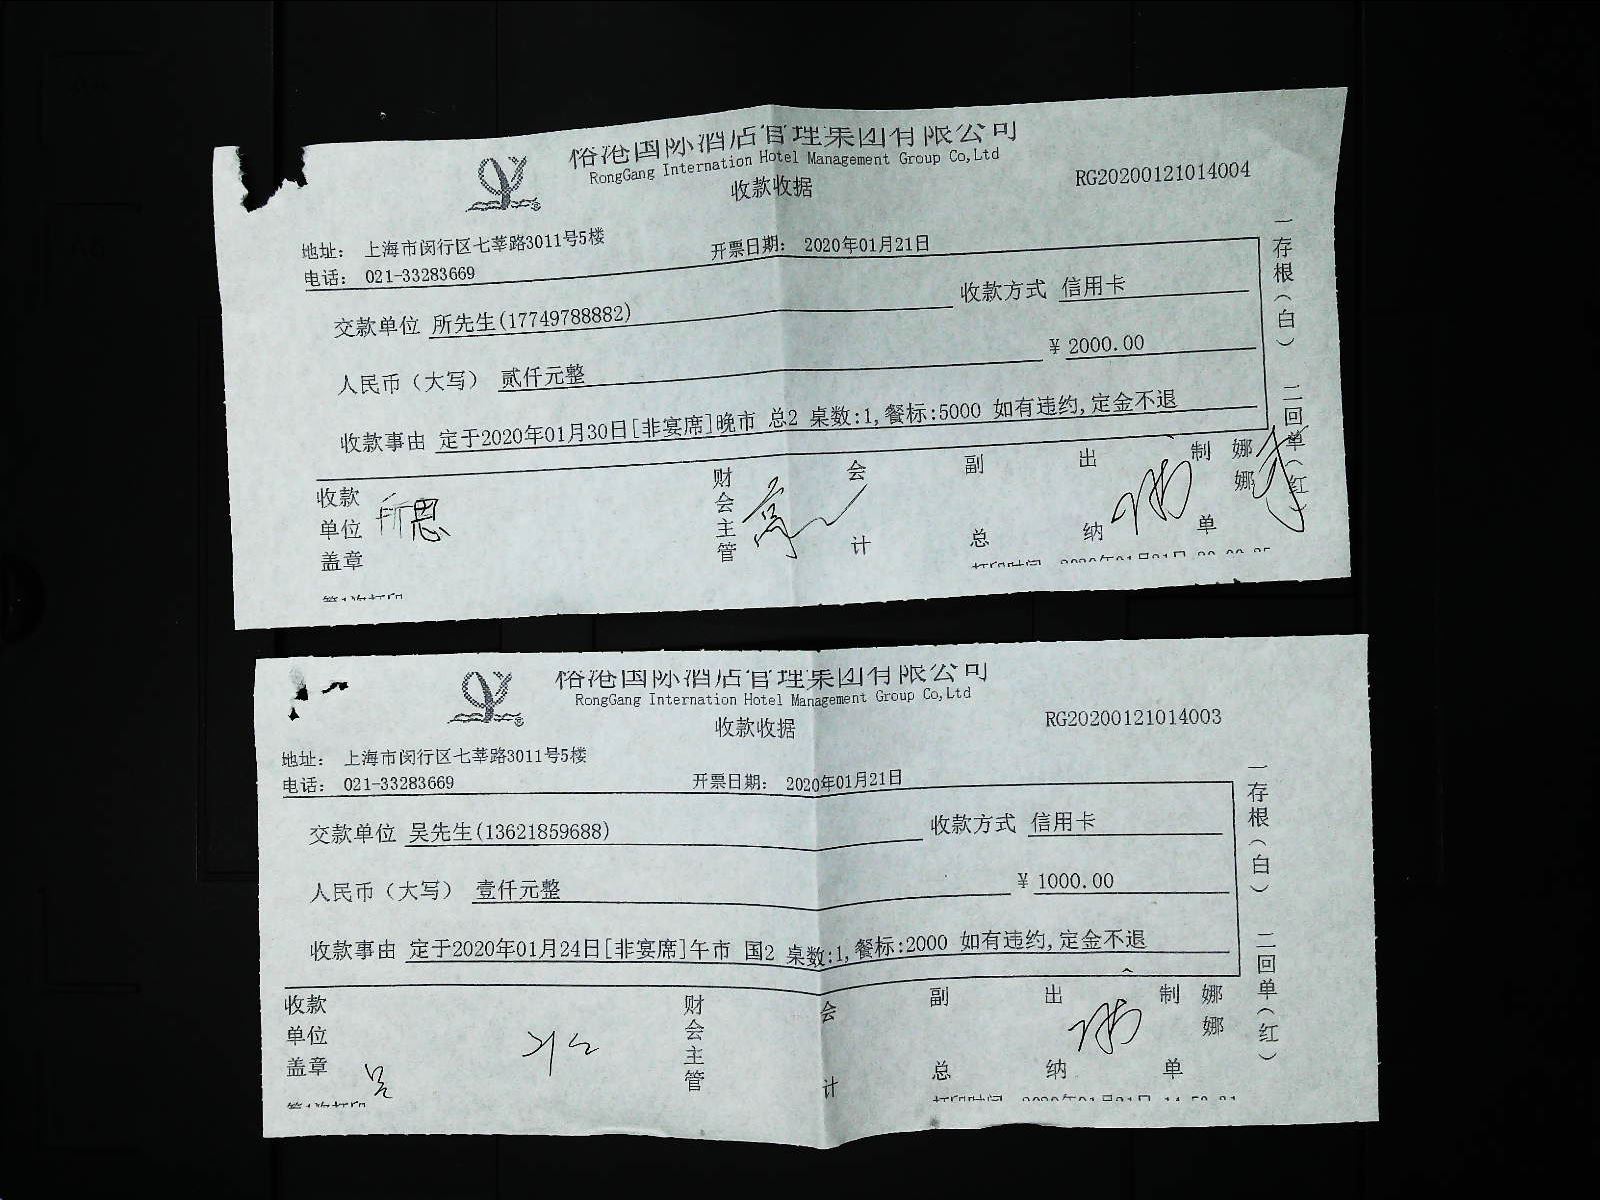 裕港国际酒店管理集团有限公司
RongGang Internation Hotel Management Group Co,Ltd
收款收据
RG20200121014004
地址： 上海市闵行区七莘路3011号5楼
电话： 021-33283669
开票日期： 2020年01月21日
交款单位 所先生(17749788882)
收款方式 信用卡
人民币（大写） 贰仟元整
¥ 2000.00
收款事由 定于2020年01月30日[非宴席]晚市 总2 桌数:1,餐标:5000 如有违约,定金不退
收款单位盖章
财会主管
会计
副总
出纳
制单
娜娜
一存根（白） 二回单（红）
第1次打印
打印时间 2020年01月21日
裕港国际酒店管理集团有限公司
RongGang Internation Hotel Management Group Co,Ltd
收款收据
RG20200121014003
地址： 上海市闵行区七莘路3011号5楼
电话： 021-33283669
开票日期： 2020年01月21日
交款单位 吴先生(13621859688)
收款方式 信用卡
人民币（大写） 壹仟元整
¥ 1000.00
收款事由 定于2020年01月24日[非宴席]午市 国2 桌数:1,餐标:2000 如有违约,定金不退
收款单位盖章
财会主管
会计
副总
出纳
制单
娜娜
一存根（白） 二回单（红）
第1次打印
打印时间 2020年01月21日